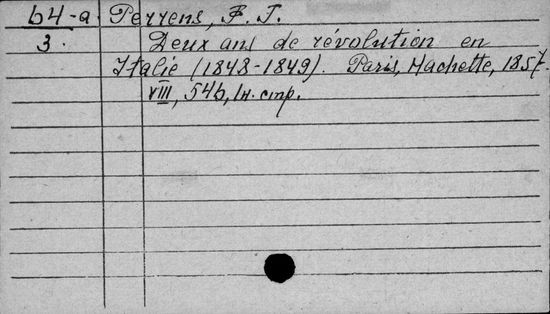 64-a Perrens, F. T.
3. Deux ans de révolution en
Italie (1848-1849). Paris, Hachette, 1857.
VIII, 546, 1н. стр.